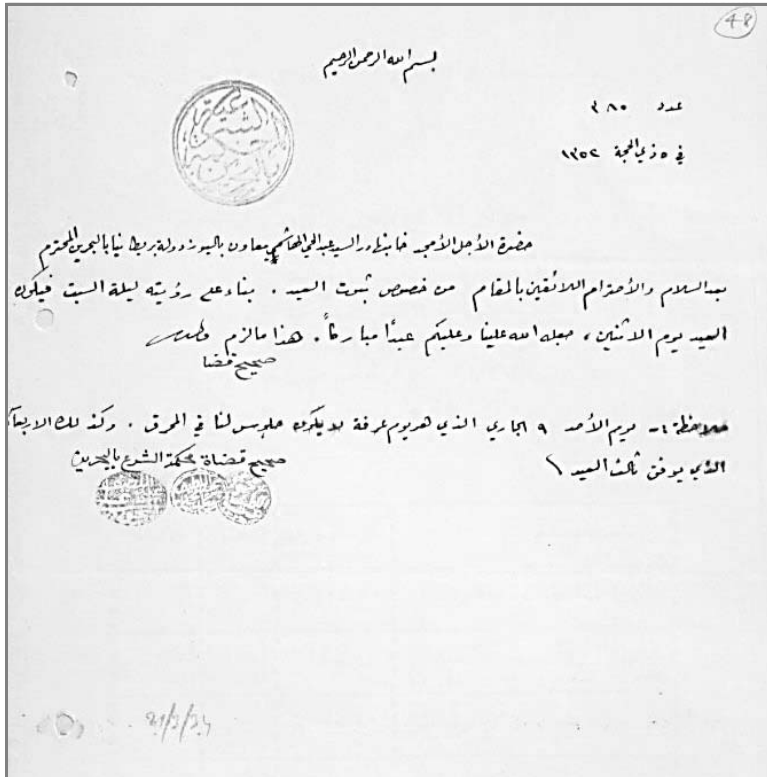 48
بسم الله الرحمن الرحيم
عدد ٣٨٥
في ٥ ذي الحجة ١٣٥٢
حضرة الأجل الأمجد خانبهادر السيد عبدالحي الهاشمي معاون باليوز دولة بريطانيا بالبحرين المحترم
بعد السلام والأحترام اللائقين بالمقام من خصوص ثبوت العيد . بناء على رؤيته ليلة السبت فيكون
العيد يوم الاثنين ، جعله الله علينا وعليكم عيدًا مباركاً . هذا مالزم
صحيح قضا
ملاحظة :- يوم الأحد ٩ الجاري الذي هو يوم عرفة لا يكون جلوس لنا في المحرق . وكذلك الاربعاء
الذي يوفق ثالث العيد
صحيح قضاة محكمة الشرع بالبحرين